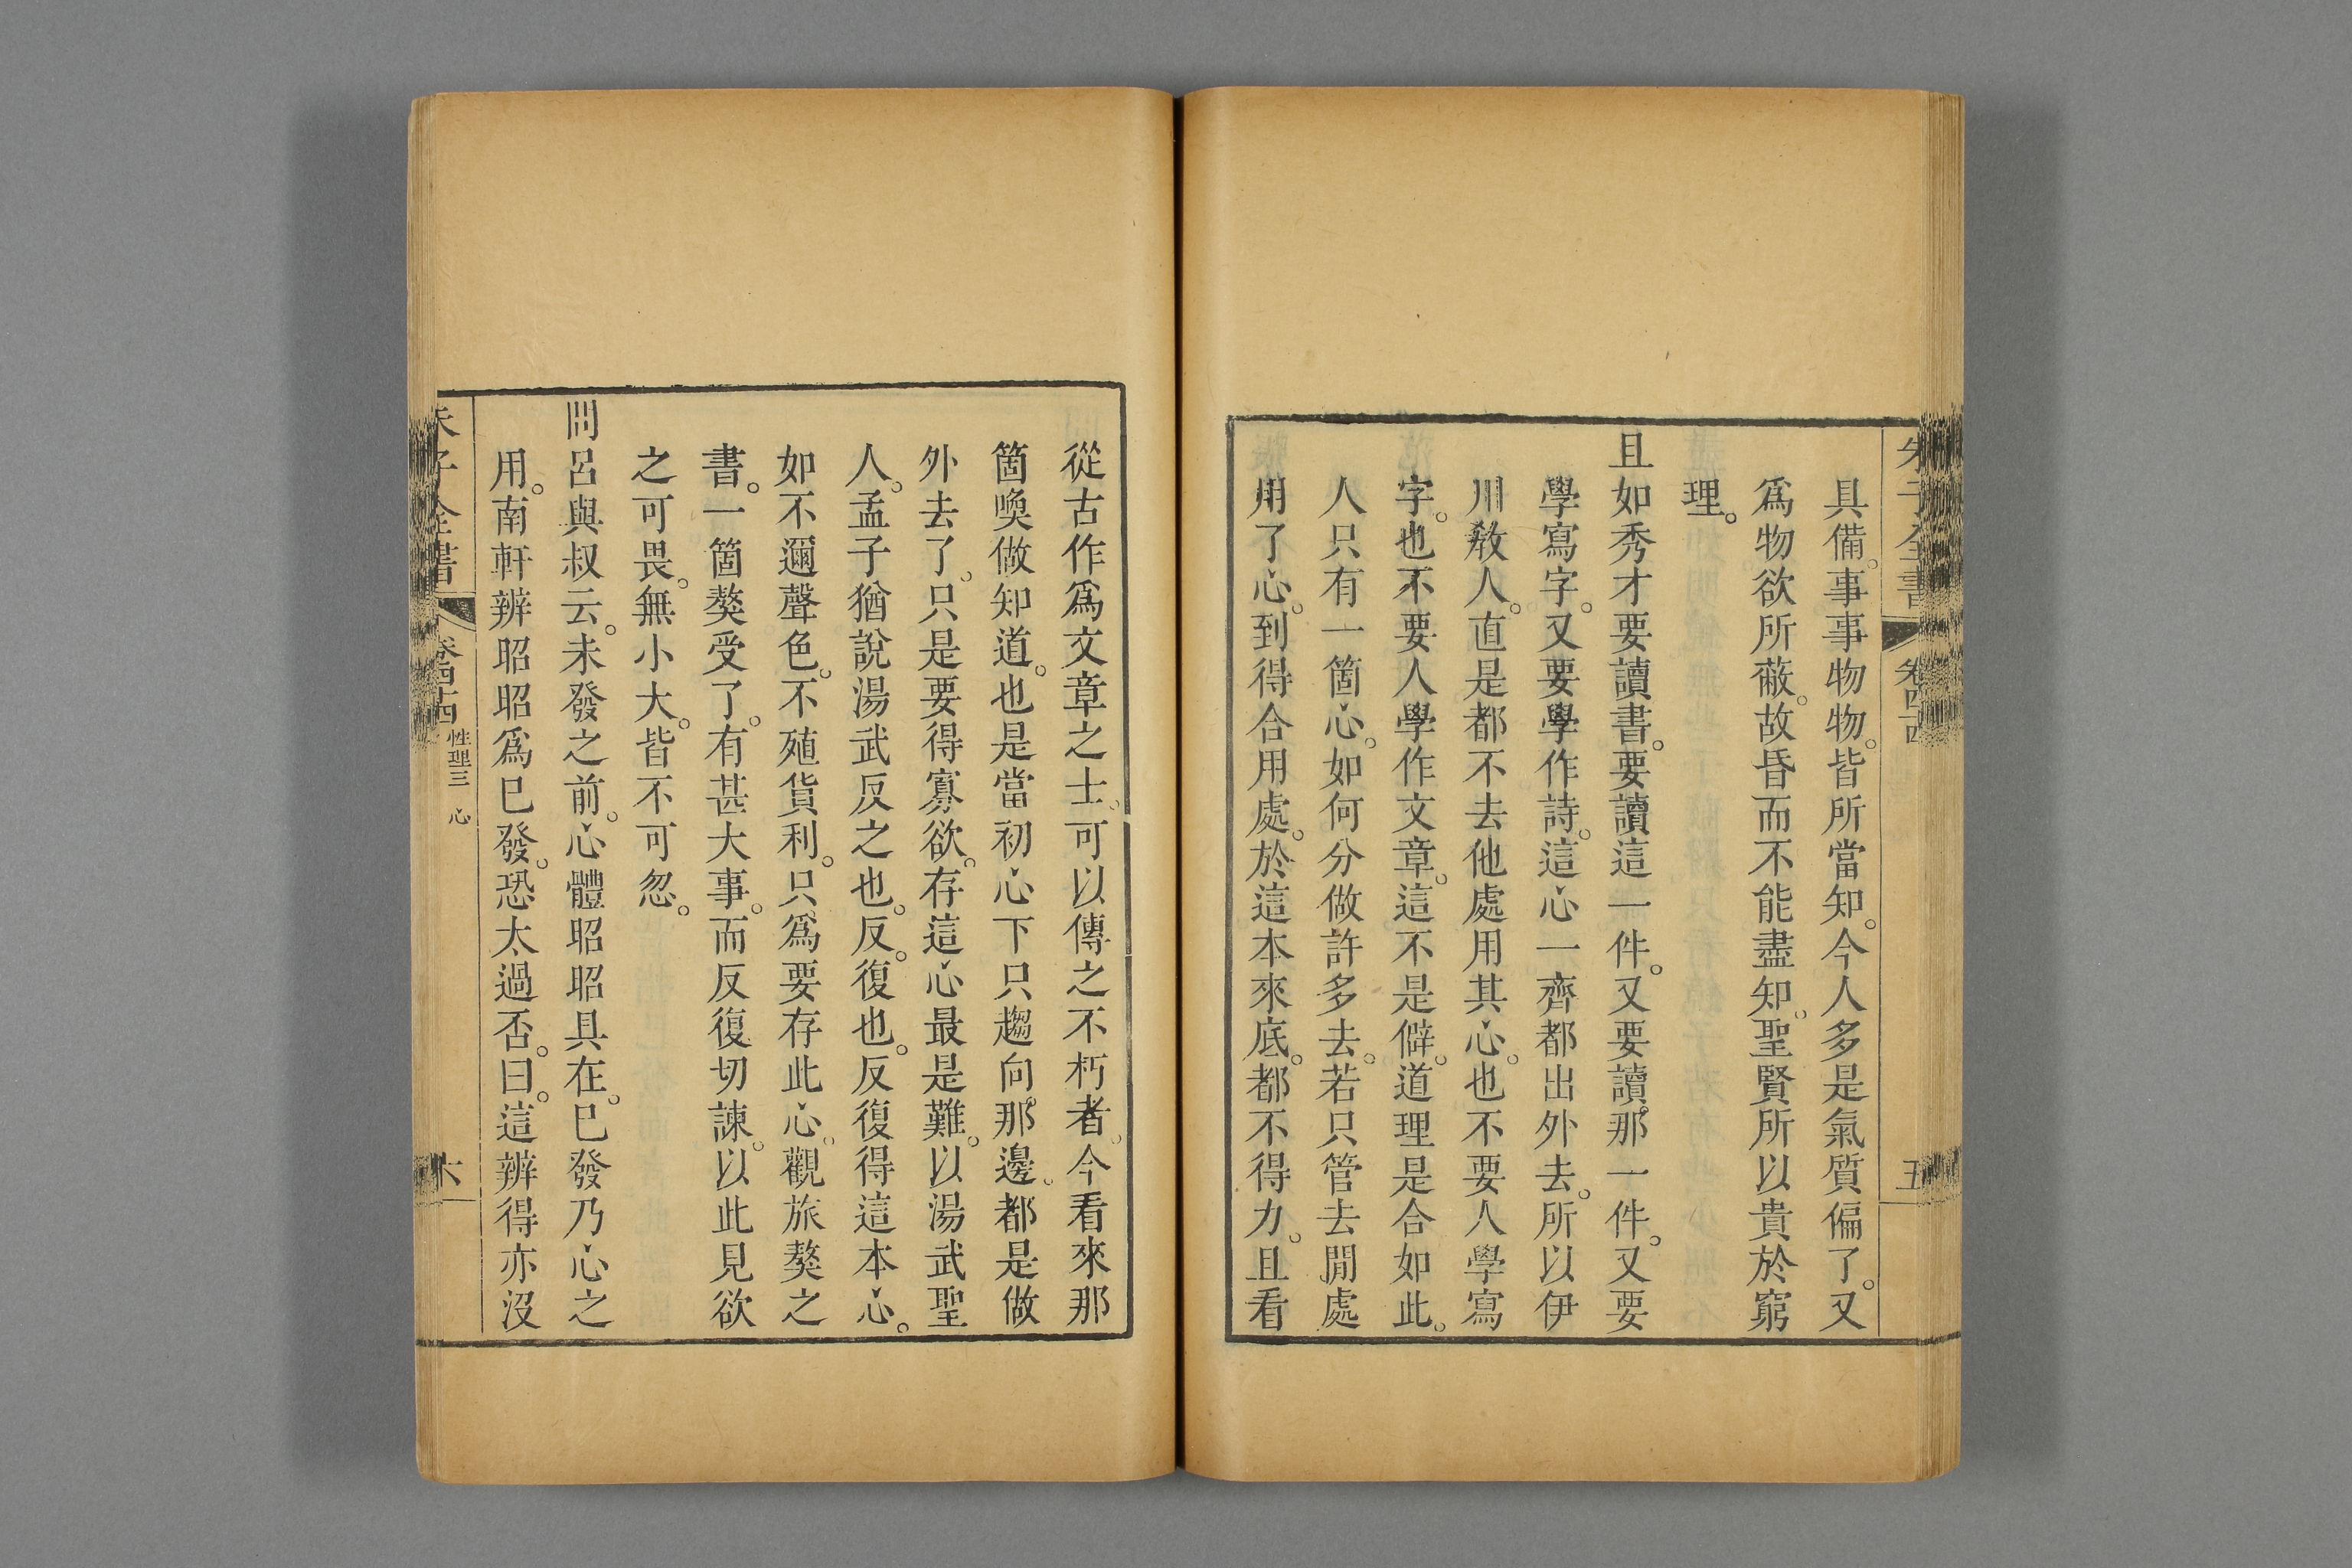 朱子全書 卷四十四 五
具備。事事物物。皆所當知。今人多是氣質偏了。又
爲物欲所蔽。故昏而不能盡知。聖賢所以貴於窮
理。
且如秀才要讀書。要讀這一件。又要讀那一件。又要
學寫字。又要學作詩。這心一齊都出外去。所以伊
川敎人。直是都不去他處用其心。也不要人學寫
字。也不要人學作文章。這不是僻。道理是合如此。
人只有一箇心。如何分做許多去。若只管去閒處
用了心。到得合用處。於這本來底。都不得力。且看
從古作爲文章之士。可以傳之不朽者。今看來那
箇喚做知道。也是當初心下只趨向那邊。都是做
外去了。只是要得寡欲。存這心最是難。以湯武聖
人。孟子猶說湯武反之也。反。復也。反復得這本心。
如不邇聲色。不殖貨利。只爲要存此心。觀旅獒之
書。一箇獒受了。有甚大事。而反復切諫。以此見欲
之可畏。無小大。皆不可忽。
問呂與叔云。未發之前。心體昭昭具在。已發乃心之
用。南軒辨昭昭爲已發。恐太過否。曰。這辨得亦沒
朱子全書 卷四十四 性理三 心 六